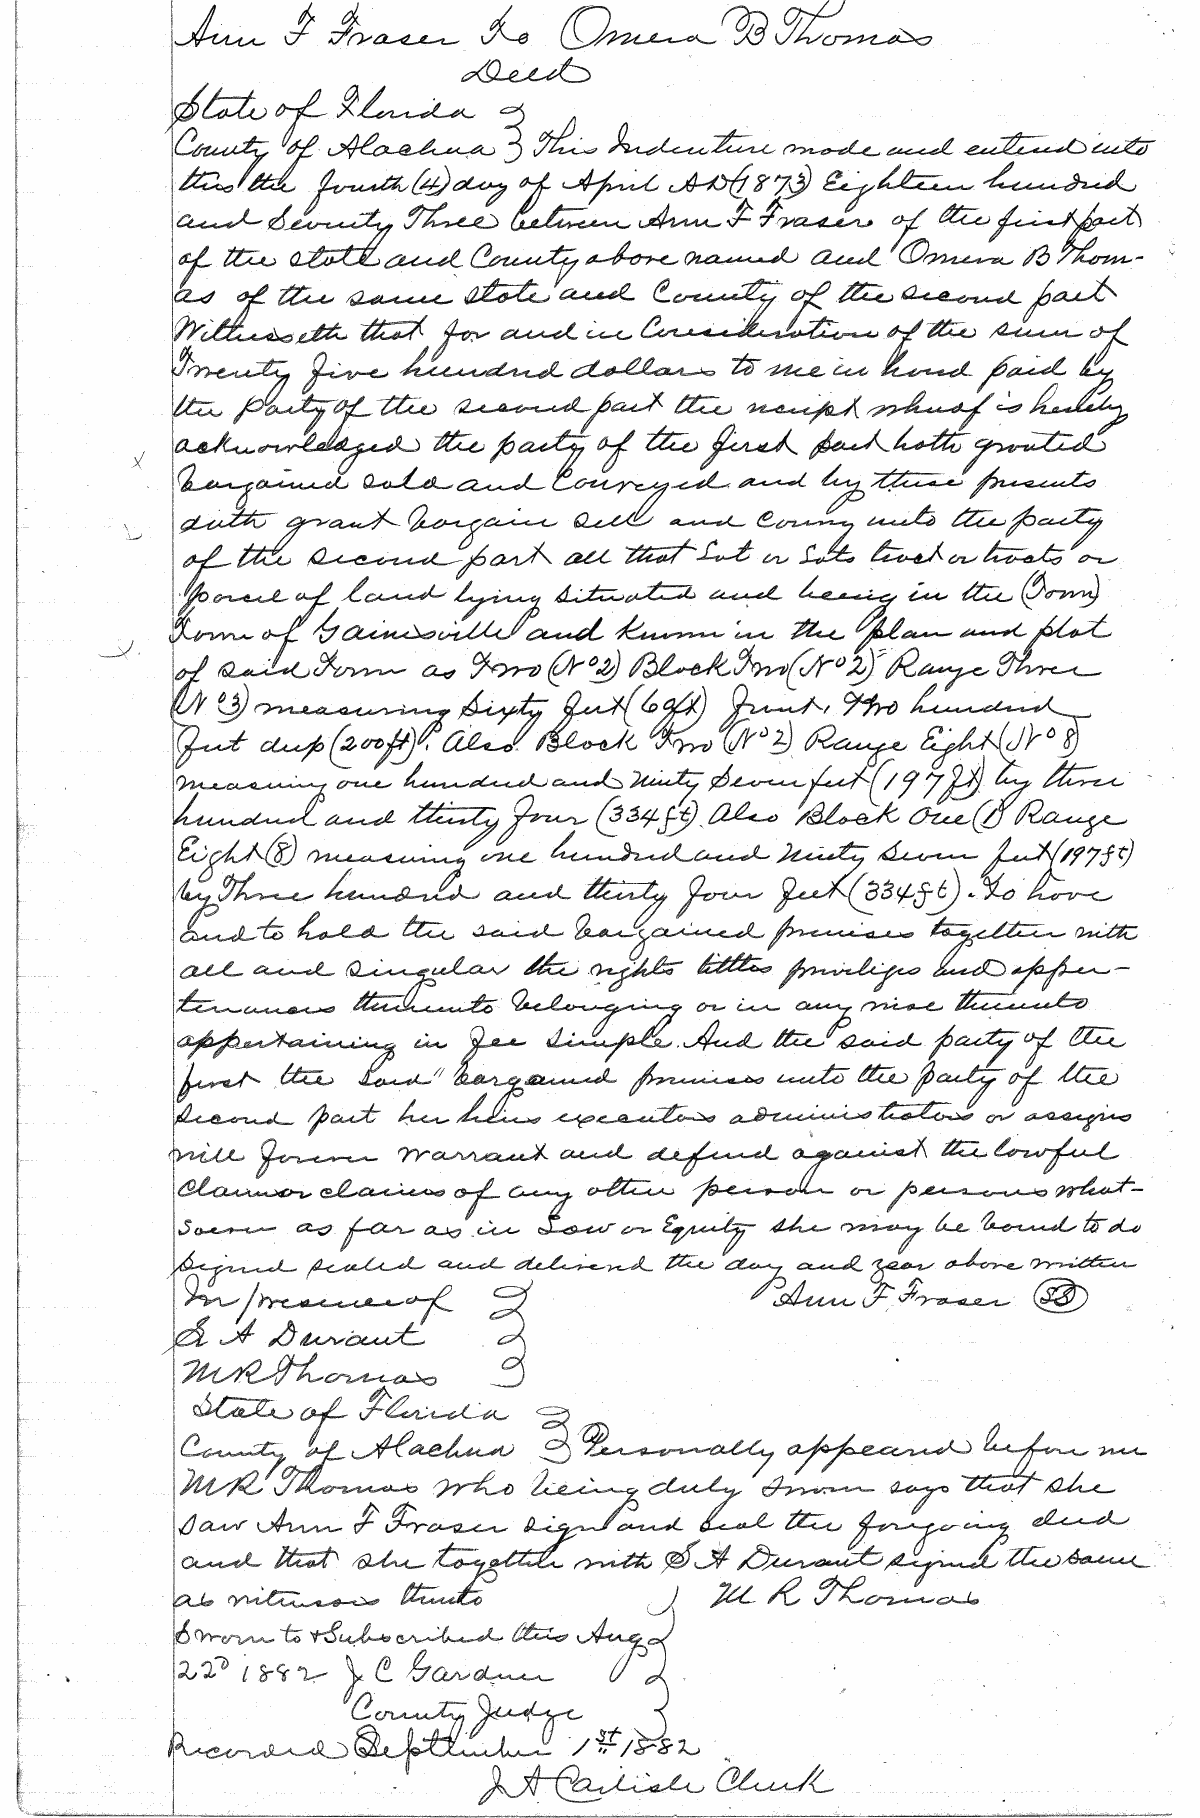 Ann F Fraser To Omera B Thomas
Deed
State of Florida
County of Alachua } This Indenture made and entered into
this the fourth (4) day of April AD (1873) Eighteen hundred
and Seventy Three between Ann F Fraser of the first part
of the state and County above named and Omera B Thom-
as of the same state and County of the second part
Witnesseth that for and in Consideration of the sum of
Twenty five hundred dollars to me in hand paid by
the party of the second part the receipt whereof is hereby
acknowledged the party of the first part hath granted
bargained sold and Conveyed and by these presents
doth grant bargain sell and convey unto the party
of the second part all that Lot or Lots tract or tracts or
parcel of land lying situated and being in the (Town)
Town of Gainesville and known in the plan and plot
of said Town as Two (No 2) Block Two (No 2) Range Three
(No 3) measuring Sixty feet (60ft) front. Two hundred
feet deep (200ft). Also Block Two (No 2) Range Eight (No 8)
measuring one hundred and Ninty Seven feet (197ft) by three
hundred and thirty four (334ft). Also Block One (1) Range
Eight (8) measuring one hundred and Ninty Seven feet (197ft)
by Three hundred and thirty four feet (334ft). To have
and to hold the said bargained premises together with
all and singular the rights tittles priviliges and apper-
tenances thereunto belonging or in any wise thereunto
appertaining in fee simple. And the said party of the
first the said" bargained premises unto the party of the
second part her heirs executors administrators or assigns
will forever warrant and defend against the lawful
claim or claims of any other person or persons what-
soever as far as in Law or Equity she may be bound to do
signed sealed and delivered the day and year above written
In presence of } Ann F Fraser (SS)
S A Durant
M R Thomas
State of Florida
County of Alachua } Personally appeared before me
M R Thomas who being duly sworn says that she
saw Ann F Fraser sign and seal the foregoing deed
and that she together with S A Durant signed the same
as witnesses thereto } M R Thomas
Sworn to & Subscribed this Aug
22d 1882 J C Gardner
County Judge
Recorded September 1st 1882
J A Carlisle Clerk